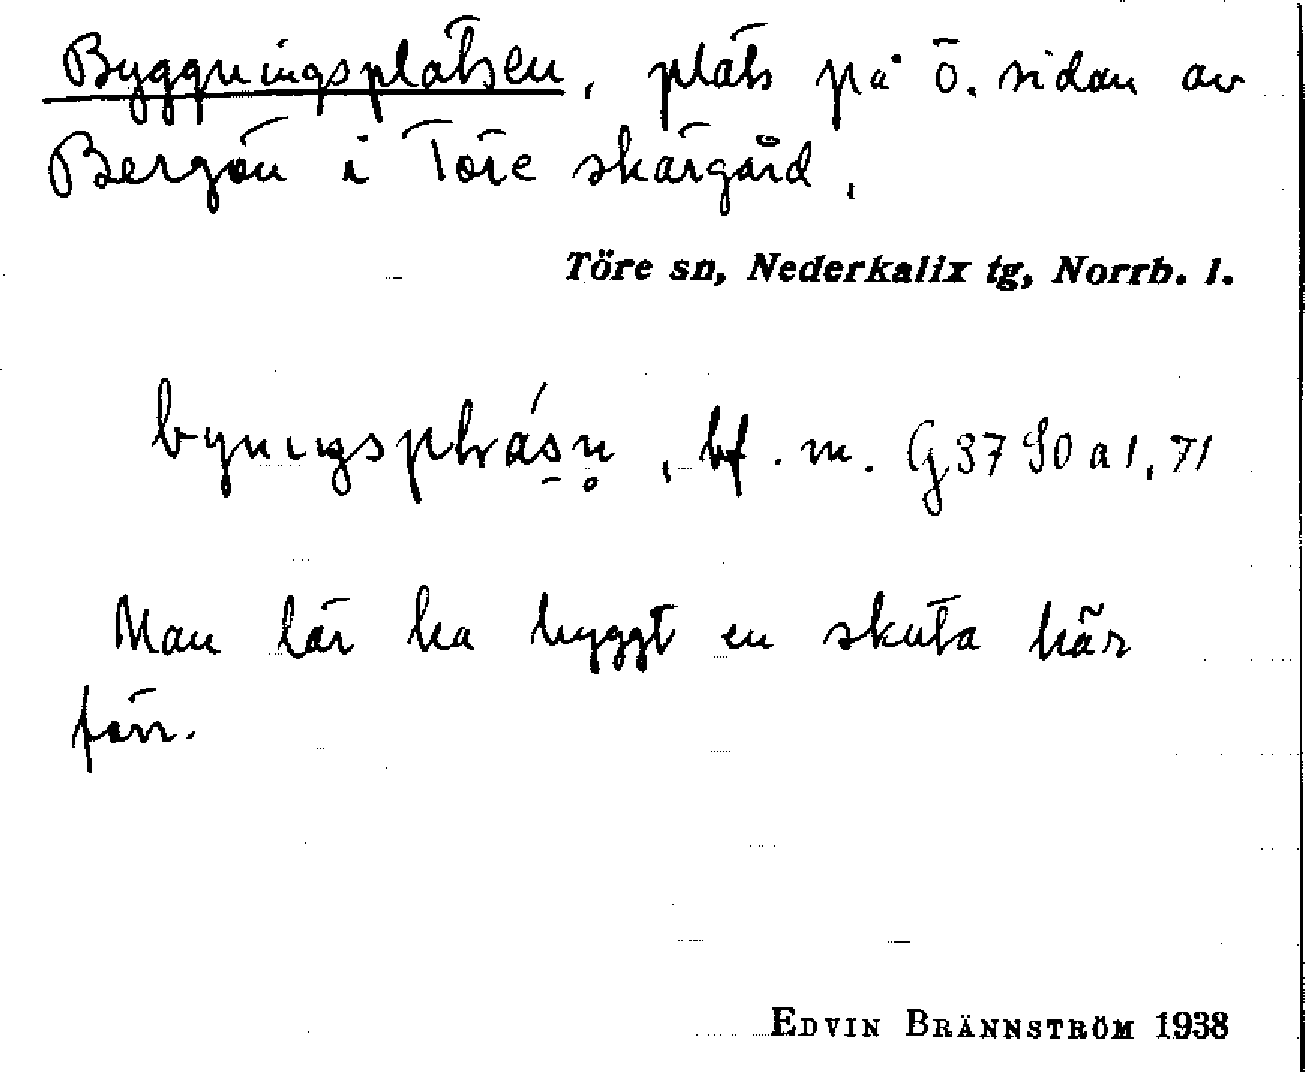 Byggningsplatsen, plats på ö. sidan av
Bergön i Töre skärgård.
Töre sn, Nederkalix tg, Norrb. l.
bf. m. G37 90 a 1, 71
Man lär ha byggt en skuta här
förr.
EDVIN BRÄNNSTRÖM 1938